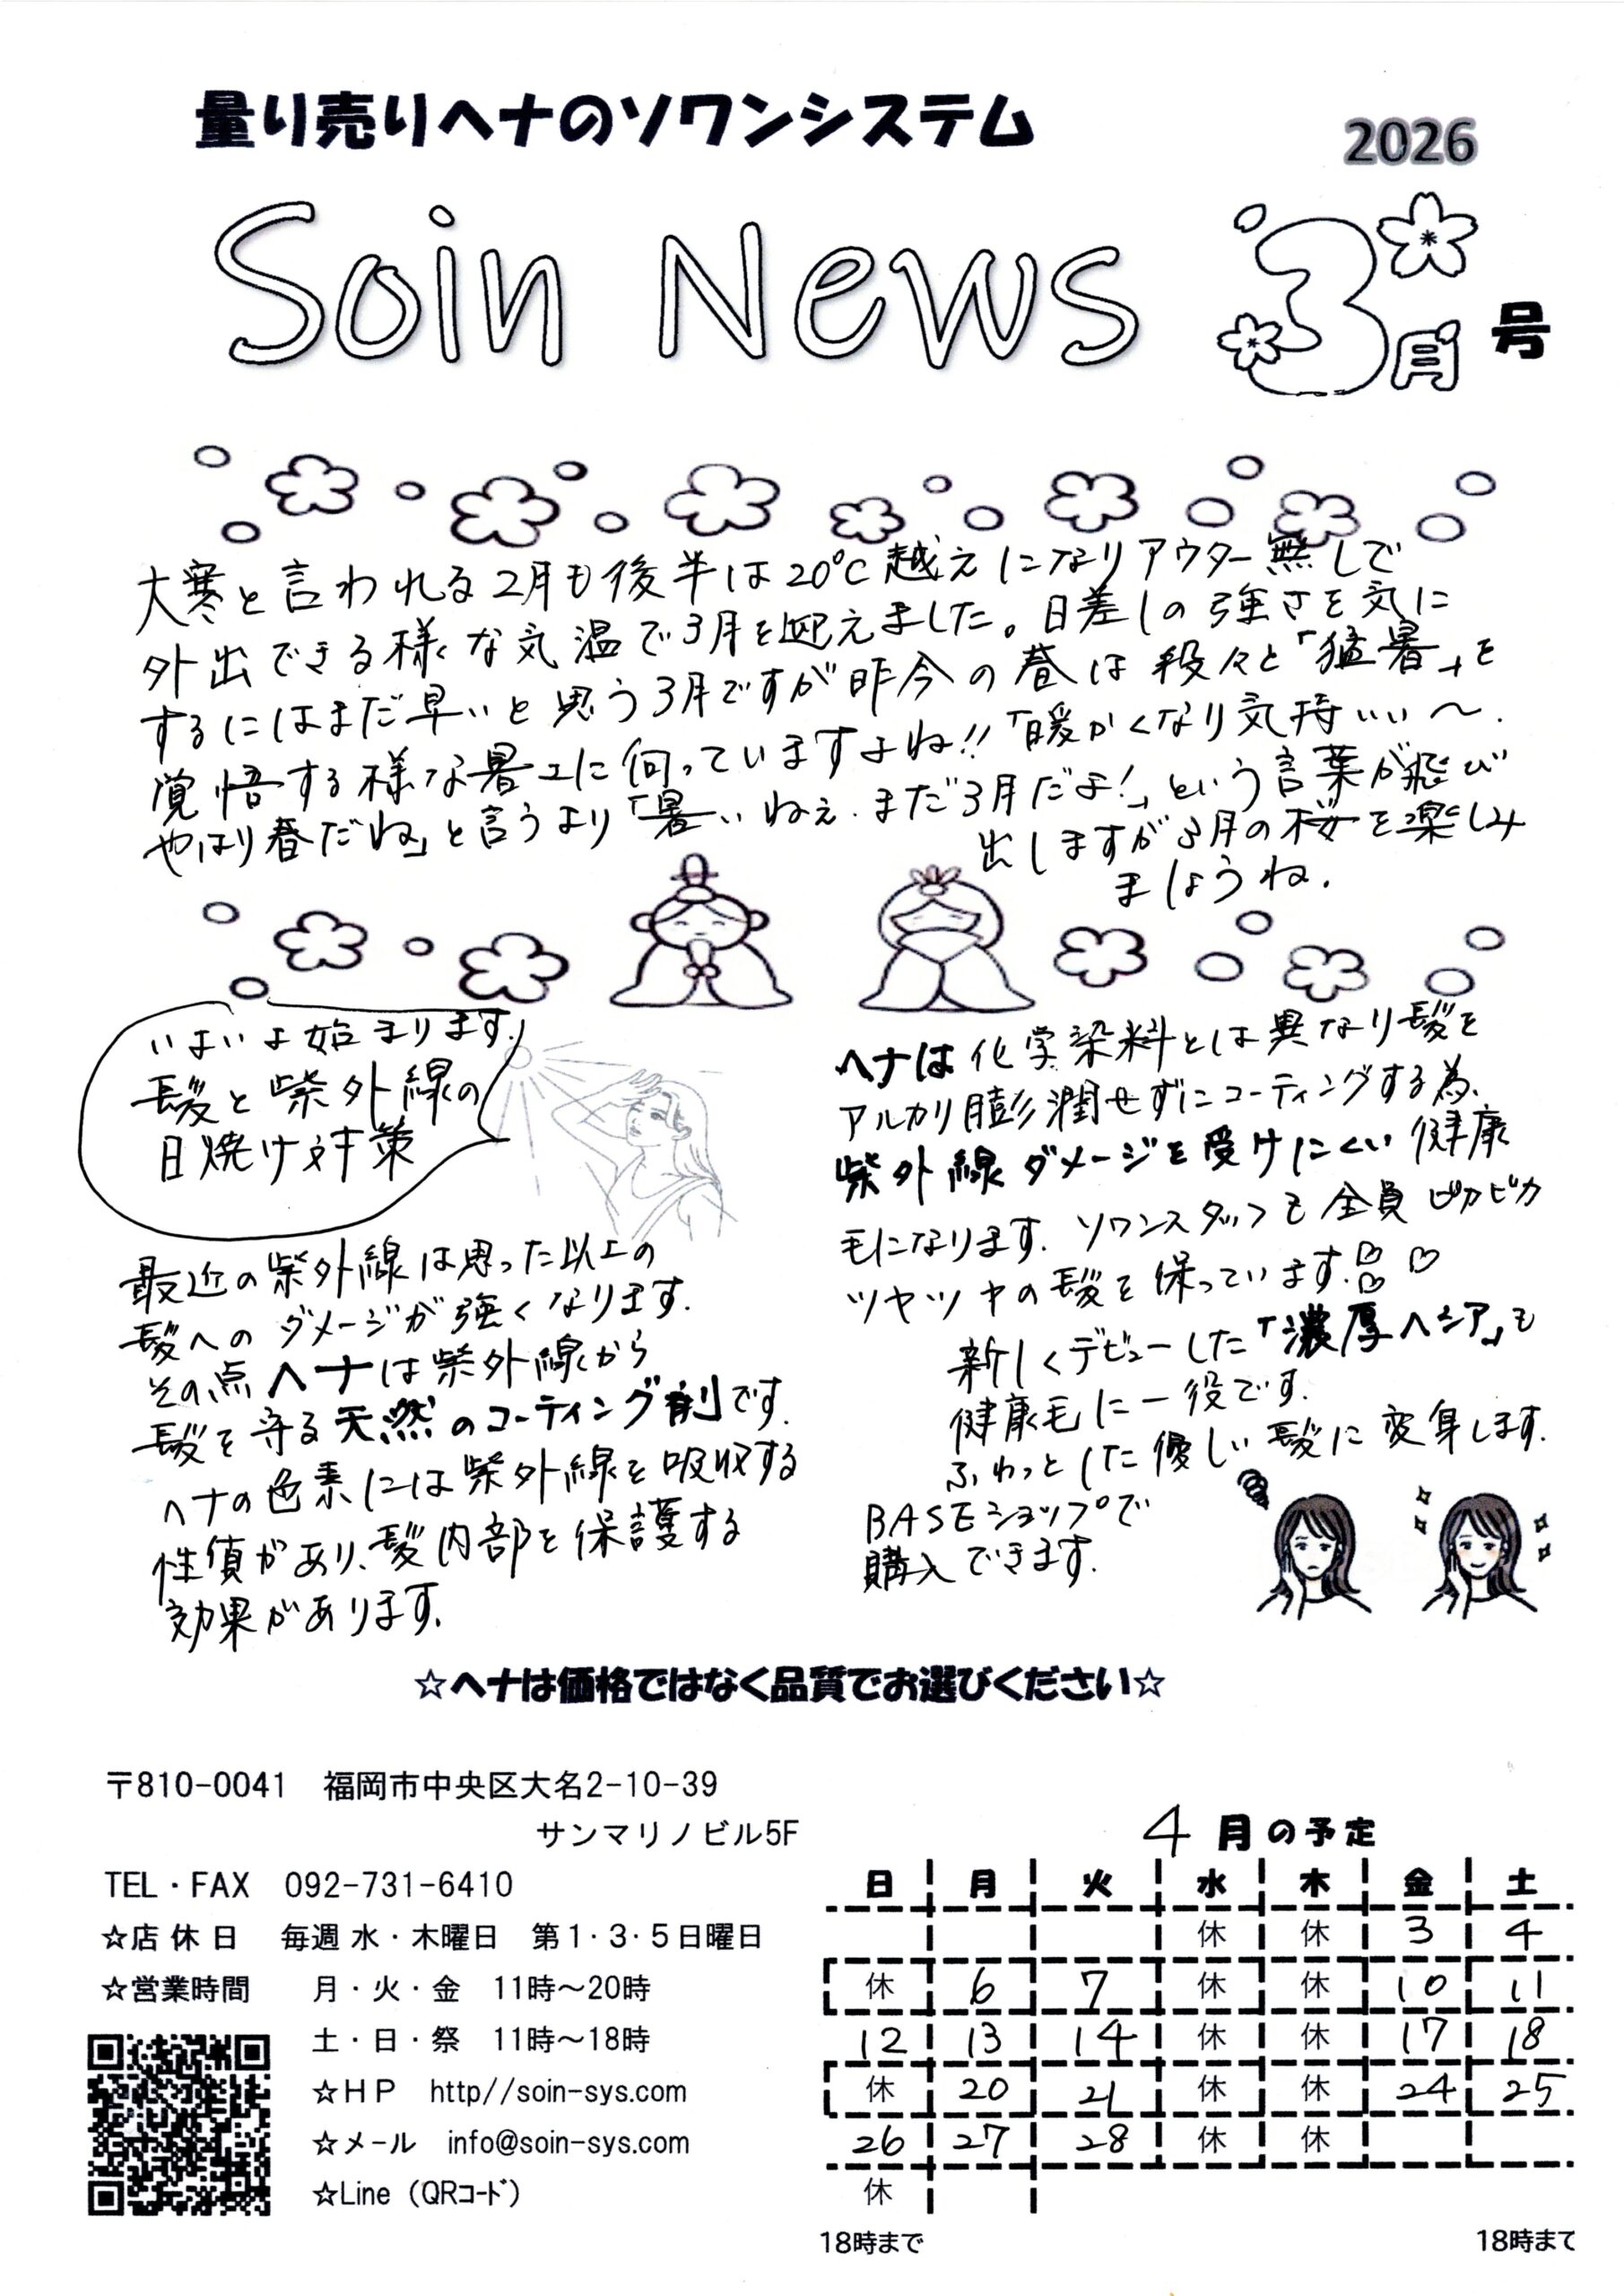 量り売りヘナのソワンシステム
2026
Soin News 3月号
大寒と言われる2月も後半は20℃越えになりアウター無しで
外出できる様な気温で3月を迎えました。日差しの強さを気に
するにはまだ早いと思う3月ですが昨今の春は段々と「猛暑」を
覚悟する様な暑さに向っていますよね!!「暖かくなり気持いい〜.
やはり春だね」と言うより「暑いねぇ.まだ3月だよ!」という言葉が飛び
出しますが3月の桜を楽しみ
ましょうね.
いよいよ始まります!
髪と紫外線の
日焼け対策
最近の紫外線は思った以上の
髪へのダメージが強くなります.
その点ヘナは紫外線から
髪を守る天然のコーティング剤です.
ヘナの色素には紫外線を吸収する
性質があり、髪内部を保護する
効果があります.
ヘナは化学染料とは異なり髪を
アルカリ膨潤せずにコーティングする為、
紫外線ダメージを受けにくい健康
毛になります.ソワンスタッフも全員ピカピカ
ツヤツヤの髪を保っています.
新しくデビューした「濃厚ヘシア」も
健康毛に一役です.
ふわっとした優しい髪に変身します.
BASEショップで
購入できます.
☆ヘナは価格ではなく品質でお選びください☆
〒810-0041 福岡市中央区大名2-10-39
サンマリノビル5F
TEL・FAX 092-731-6410
☆店休日 毎週 水・木曜日 第1・3・5日曜日
☆営業時間 月・火・金 11時〜20時
土・日・祭 11時〜18時
☆HP http//soin-sys.com
☆メール info@soin-sys.com
☆Line (QRコード)
4月の予定
日 月 火 水 木 金 土
休 休 3 4
休 6 7 休 休 10 11
12 13 14 休 休 17 18
休 20 21 休 休 24 25
26 27 28 休 休
休
18時まで 18時まで